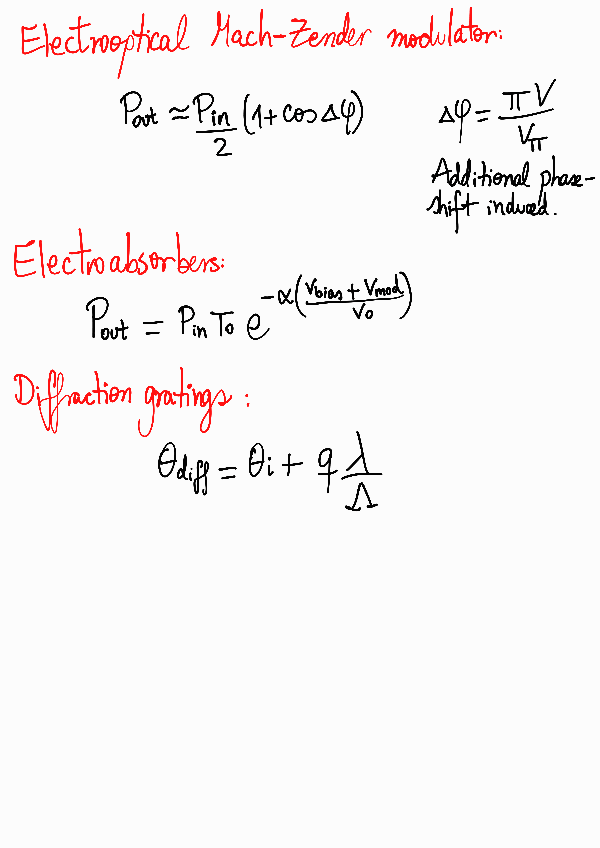 Electrooptical Mach-Zender modulator:
Pout ≈ Pin/2 (1+cos Δφ)    Δφ = πV/Vπ
Additional phase-
shift induced.
Electroabsorbers:
Pout = Pin T0 e^(-α((Vbias + Vmod)/V0))
Diffraction gratings:
θdiff = θi + q λ/Λ